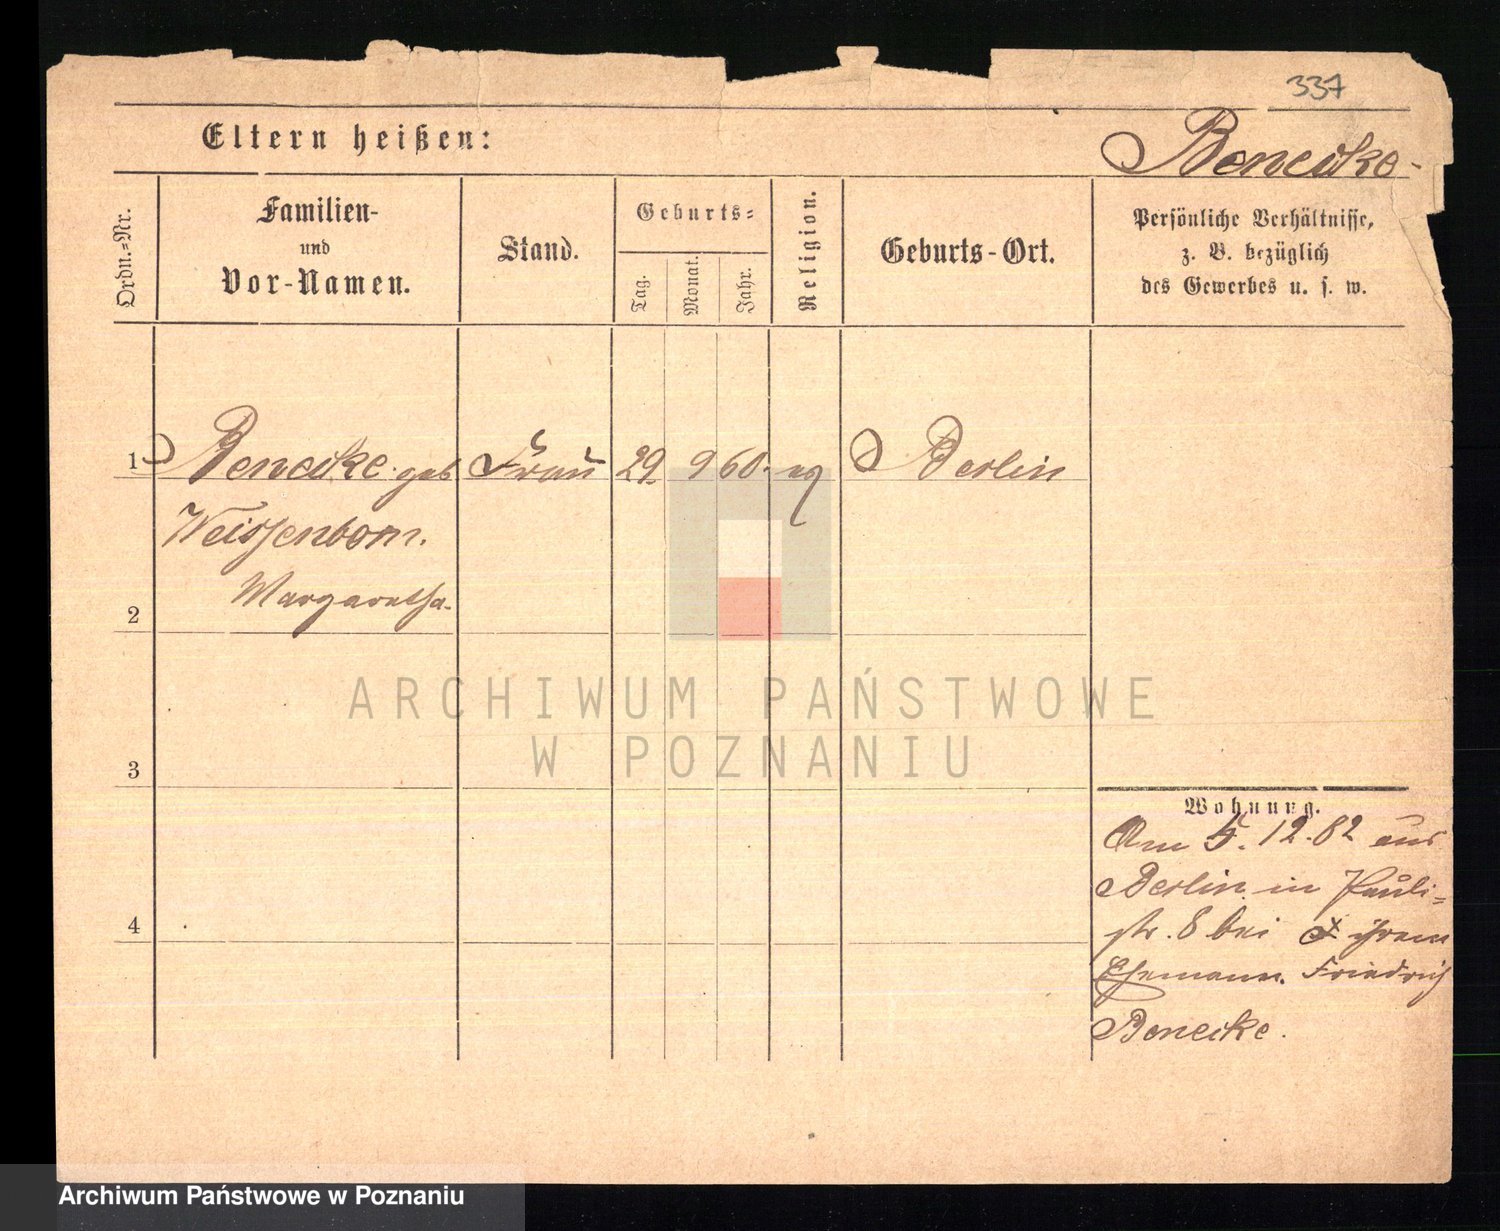 337
Eltern heißen:
Benecke
Ordn.-Nr.
Familien-
und
Vor-Namen.
Stand.
Geburts-
Tag.
Monat.
Jahr.
Religion.
Geburts-Ort.
Persönliche Verhältnisse,
z. B. bezüglich
des Gewerbes u. s. w.
1 Benecke geb Frau 29. 9 60. ev Berlin
Weissenborn.
Margaretha.
2
3
4
Wohnung.
Am 5. 12. 82 aus
Berlin in Pauli-
str. 8 bei ihrem
Ehemann. Friedrich
Benecke.
ARCHIWUM PAŃSTWOWE
W POZNANIU
Archiwum Państwowe w Poznaniu